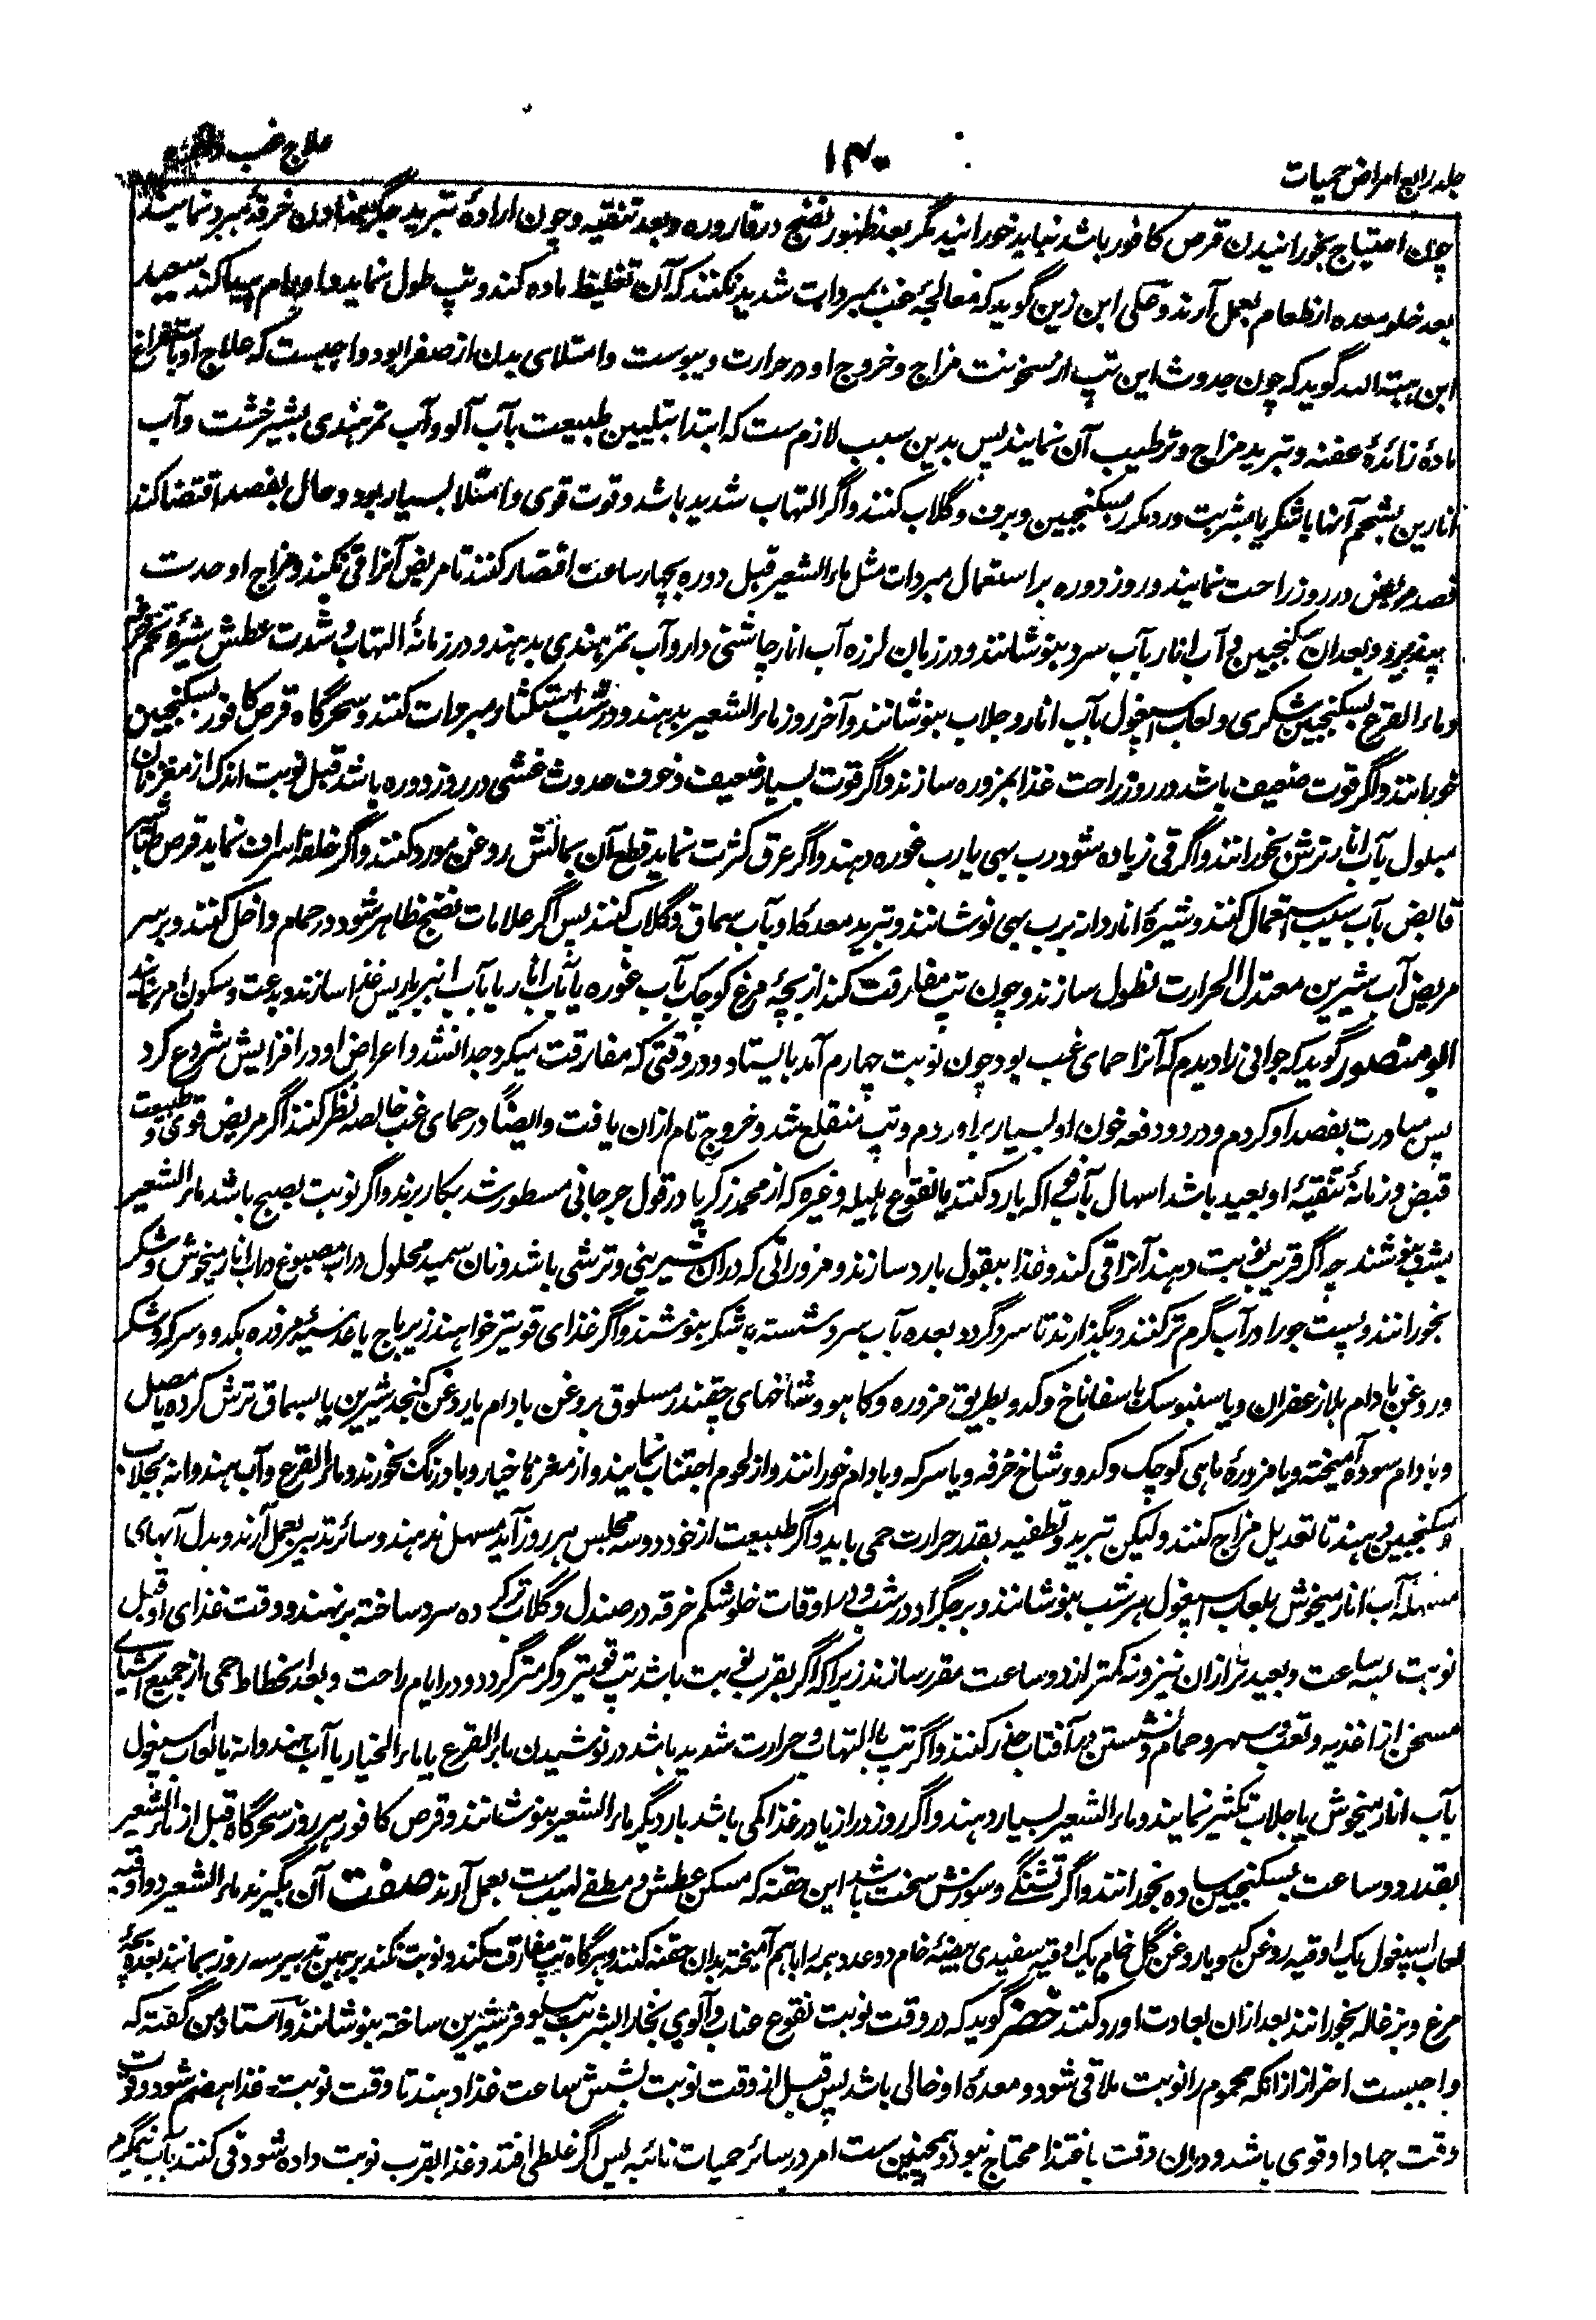 جلد رابع امراض حمیات
۱۳۰
علاج غب
چون احتیاج بخورانیدن قرص کافور باشد نباید خورانید مگر بعد ظهور نضج در قاروره و بعد تنقیه و چون ارادهٔ تبرید جگر بنهادن خرقهٔ مبرد نمایند
بعد خلو معده از طعام بعمل آرند و حکی ابن زین گوید که معالجهٔ غب بمبردات شدید نکنند که آن تغلیظ ماده کند و تپ طول نماید و اورام پیدا کند سعید
ابن هبة الله گوید که چون حدوث این تپ از سخونت مزاج و خروج او در حرارت و یبوست و امتلای بدن از صفرا بود واجبست که علاج او باستفراغ
مادهٔ زائدهٔ عفنه و تبرید مزاج و ترطیب آن نمایند پس بدین سبب لازم ست که ابتدا بتلیین طبیعت بآب آلو و آب تمرهندی بشیرخشت و آب
انارین بشحم آنها باشکر یا بشربت ورد مکرر بسکنجبین و برف و گلاب کنند و اگر التهاب شدید باشد و قوت قوی و امتلا بسیار بود و حال بفصد اقتضا کند
فصد مریض در روز راحت نمایند و روز دوره بر استعمال مبردات مثل ماء الشعیر قبل دوره بچهار ساعت اقتصار کنند تا مریض آنرا قی نکند و مزاج او حدت
نپذیرد و بعد آن سکنجبین و آب انار بآب سرد بنوشانند و در زمان لرزه آب انار چاشنی دار و آب تمرهندی بدهند و در زمانهٔ التهاب و شدت عطش شیرهٔ تخم خرفه
و ماء القرع بسکنجبین شکری و لعاب اسپغول بآب انار و جلاب بنوشانند و آخر روز ماء الشعیر بدهند و در شب استکثار مبردات کنند و سحرگاه قرص کافور بسکنجبین
خورانند و اگر قوت ضعیف باشد در روز راحت غذا بمزوره سازند و اگر قوت بسیار ضعیف و خوف حدوث غشی در روز دوره باشد قبل نوبت اندک از مغز نان
مبلول بآب انار ترش بخورانند و اگر قی زیاده شود رب بهی یا رب غوره دهند و اگر عرق کثرت نماید قطع آن بمالش روغن مورد کنند و اگر خلفه اسراف نماید قرص طباشیر
قابض بآب سیب استعمال کنند و شیرهٔ اناردانه برب بهی نوشانند و تبرید معدهٔ او بآب سماق و گلاب کنند پس اگر علامات نضج ظاهر شود در حمام داخل کنند و بر سر
مریض آب شیرین معتدل الحرارت نطول سازند و چون تپ مفارقت کند از بچهٔ مرغ کوچک بآب غوره یا بآب انار یا بآب انبرباریس غذا سازند و بدعت و سکون امر نمایند
ابو منصور گوید که جوانی را دیدم که آنرا حمای غب بود چون نوبت چهارم آمد بایستاد و در وقتی که مفارقت میکرد جدا نشد و اعراض او در افزایش شروع کرد
پس مبادرت بفصد او کردم و در دو دفعه خون او بسیار برآوردم و تپ منقلع شد و خروج تام ازان یافت و ایضاً در حمای غب خالصه نظر کنند اگر مریض قوی و طبیعت
قبض و زمانهٔ تنقیهٔ او بعید باشد اسهال بآب فواکه بارد کنند یا نقوع هلیله و غیره که از محمد زکریا در قول جرجانی مسطور شد بکار برند و اگر نوبت بصبح باشد ماء الشعیر
بشب بنوشند چه اگر قریب نوبت دهند آنرا قی کند و غذا ببقول بارد سازند و مزوراتی که دران شیرینی و ترشی باشد و نان سمید محلول در آب مصبوغ در آب انار میخوش و شکر
بخورانند و پست جو را در آب گرم تر کنند و بگذارند تا سرد گردد بعده بآب سرد شسته بشکر بنوشند و اگر غذای قویتر خواهند زیرباج یا عدسیهٔ مزوره بکدو و سرکه و شکر
و روغن بادام بلا زعفران و یا سنبوسک با سفاناخ و کدو بطریق مزوره و کاهو و شاخهای چقندر مسلوق بروغن بادام یا روغن کنجد شیرین یا بسماق ترش کرده یا بصل
و بادام سوده آمیخته و یا مزورهٔ ماهی کوچک و کدو و شاخ خرفه و یا سرکه و بادام خورانند و از لحوم اجتناب نمایند و از مغزها خیار و بادرنگ بخورند و ماء القرع و آب هندوانه بجلاب
و سکنجبین دهند تا تعدیل مزاج کنند ولیکن تبرید و تطفیه بقدر حرارت حمی باید و اگر طبیعت از خود دو سه مجلس هر روز آید مسهل ندهند و سائر تدبیر بعمل آرند و بدل آبهای
مسهله آب انار میخوش بلعاب اسپغول هر شب بنوشانند و بر جگر او در شب و در اوقات خلو شکم خرقه در صندل و گلاب تر کرده سرد ساخته برنهند و وقت غذای او قبل
نوبت بسه ساعت و بعیدتر ازان نیز و نه کمتر از دو ساعت مقرر سازند زیرا که اگر بقرب نوبت باشد تپ قویتر و گرمتر گردد و در ایام راحت و بعد انحطاط حمی از جمیع اشیای
مسخن از اغذیه و تعب و سهر و حمام و نشستن در آفتاب حذر کنند و اگر تپ با التهاب و حرارت شدید باشد در نوشیدن ماء القرع یا ماء الخیار یا آب هندوانه یا لعاب اسپغول
بآب انار میخوش یا جلاب تکثیر نمایند و ماء الشعیر بسیار دهند و اگر روز دراز یا در غذا کمی باشد بار دیگر ماء الشعیر بنوشانند و قرص کافور هر روز سحرگاه قبل از ماء الشعیر
بقدر دو ساعت بسکنجبین ساده بخورانند و اگر تشنگی و سوزش سخت باشد این حقنه که مسکن عطش و مطفی لهیب ست بعمل آرند صفت آن بگیرند ماء الشعیر دو اوقیه
لعاب اسپغول یک اوقیه روغن کدو یا روغن گل خام یک اوقیه سفیدی بیضهٔ خام دو عدد همه را باهم آمیخته بدان حقنه کنند و هرگاه تپ مفارقت کند و نوبت نکند بر همین تدبیر سه روز بمانند بعده بچهٔ
مرغ و بزغاله بخورانند بعد ازان بعادت او رد کنند خضر گوید که در وقت نوبت نقوع عناب و آلوی بخارا بشربت نیلوفر شیرین ساخته بنوشانند و استاد من گفته که
واجبست احتراز ازانکه محموم را نوبت ملاقی شود و معدهٔ او خالی باشد پس قبل از وقت نوبت بشش ساعت غذا دهند تا وقت نوبت غذا هضم شود و قوت
وقت جهاد او قوی باشد و دران وقت باغتذا محتاج نبود و همچنین ست امر در سائر حمیات نائبه پس اگر غلطی افتد و غذا بقرب نوبت داده شود قی کنند بآب نیمگرم